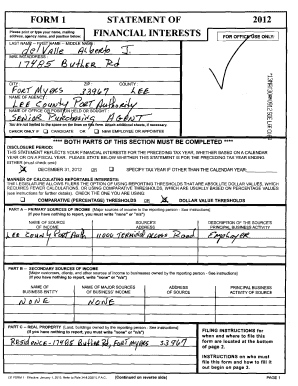 FORM 1 STATEMENT OF 2012
FINANCIAL INTERESTS
Please print or type your name, mailing address, agency name, and position below:
FOR OFFICE USE ONLY:
LAST NAME -- FIRST NAME -- MIDDLE NAME :
delValle Alberto J.
MAILING ADDRESS :
17485 Butler Rd
CITY : ZIP : COUNTY :
Fort Myers 33967 LEE
NAME OF AGENCY :
LEE County Port Authority
NAME OF OFFICE OR POSITION HELD OR SOUGHT :
Senior Purchasing AGENT
You are not limited to the space on the lines on this form. Attach additional sheets, if necessary.
CHECK ONLY IF CANDIDATE OR NEW EMPLOYEE OR APPOINTEE
**** BOTH PARTS OF THIS SECTION MUST BE COMPLETED ****
DISCLOSURE PERIOD:
THIS STATEMENT REFLECTS YOUR FINANCIAL INTERESTS FOR THE PRECEDING TAX YEAR, WHETHER BASED ON A CALENDAR
YEAR OR ON A FISCAL YEAR. PLEASE STATE BELOW WHETHER THIS STATEMENT IS FOR THE PRECEDING TAX YEAR ENDING
EITHER (must check one):
DECEMBER 31, 2012 OR SPECIFY TAX YEAR IF OTHER THAN THE CALENDAR YEAR:
MANNER OF CALCULATING REPORTABLE INTERESTS:
THE LEGISLATURE ALLOWS FILERS THE OPTION OF USING REPORTING THRESHOLDS THAT ARE ABSOLUTE DOLLAR VALUES, WHICH
REQUIRES FEWER CALCULATIONS, OR USING COMPARATIVE THRESHOLDS, WHICH ARE USUALLY BASED ON PERCENTAGE VALUES
(see instructions for further details). CHECK THE ONE YOU ARE USING:
COMPARATIVE (PERCENTAGE) THRESHOLDS OR DOLLAR VALUE THRESHOLDS
PART A -- PRIMARY SOURCES OF INCOME [Major sources of income to the reporting person - See instructions]
(If you have nothing to report, write "none" or "n/a")
NAME OF SOURCE OF INCOME SOURCE'S ADDRESS DESCRIPTION OF THE SOURCE'S PRINCIPAL BUSINESS ACTIVITY
LEE County Port Auth 11000 Terminal Access Road Employer
PART B -- SECONDARY SOURCES OF INCOME
[Major customers, clients, and other sources of income to businesses owned by the reporting person - See instructions]
(If you have nothing to report, write "none" or "n/a")
NAME OF BUSINESS ENTITY NAME OF MAJOR SOURCES OF BUSINESS' INCOME ADDRESS OF SOURCE PRINCIPAL BUSINESS ACTIVITY OF SOURCE
NONE NONE
PART C -- REAL PROPERTY [Land, buildings owned by the reporting person - See instructions]
(If you have nothing to report, write "none" or "n/a")
Residence - 17485 Butler Rd, Fort Myers 33967
FILING INSTRUCTIONS for
when and where to file this
form are located at the bottom
of page 2.
INSTRUCTIONS on who must
file this form and how to fill it
out begin on page 3.
CE FORM 1 (Continued on reverse side) PAGE 1